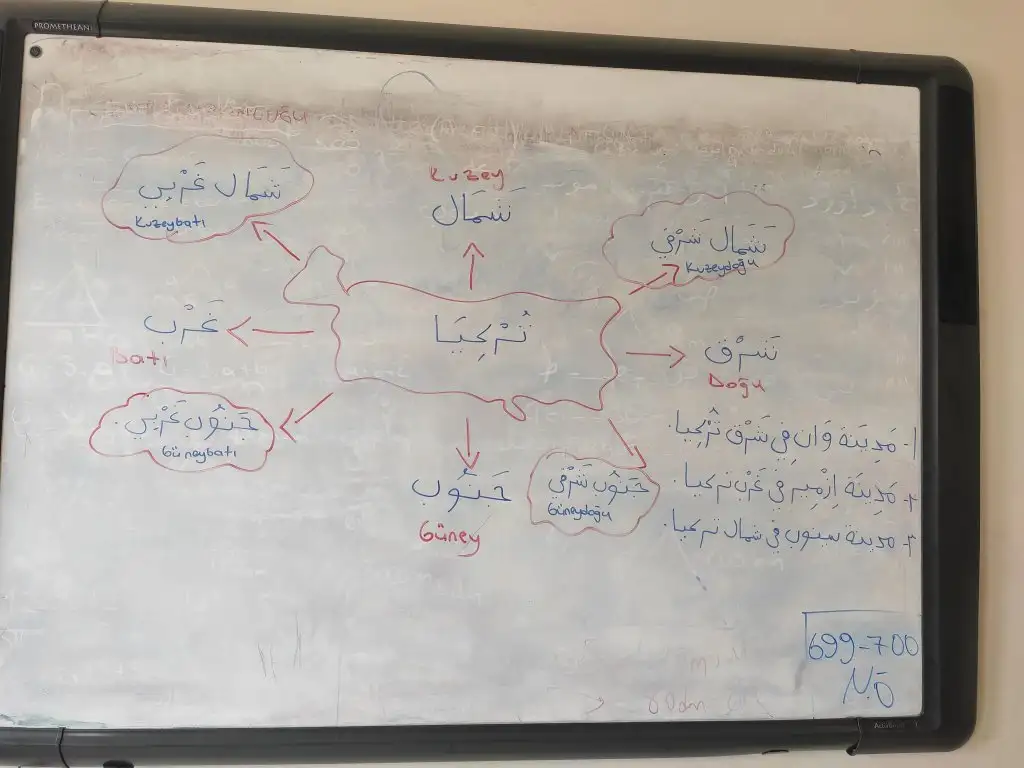 PROMETHEAN
شَمَال غَرْبِي
Kuzeybatı
Kuzey
شَمَال
شَمَال شَرْقِي
Kuzeydoğu
غَرْب
batı
تُرْكِيَا
شَرْق
Doğu
جَنُوب غَرْبِي.
Güneybatı
جَنُوب
Güney
جَنُوب شَرْقِي
Güneydoğu
١- مَدِينَة وَان فِي شَرْق تُرْكِيَا.
٢- مَدِينَة اِزْمِير فِي غَرْب تركيا.
٣- مدينة سينوب في شمال تركيا.
699-700
NO